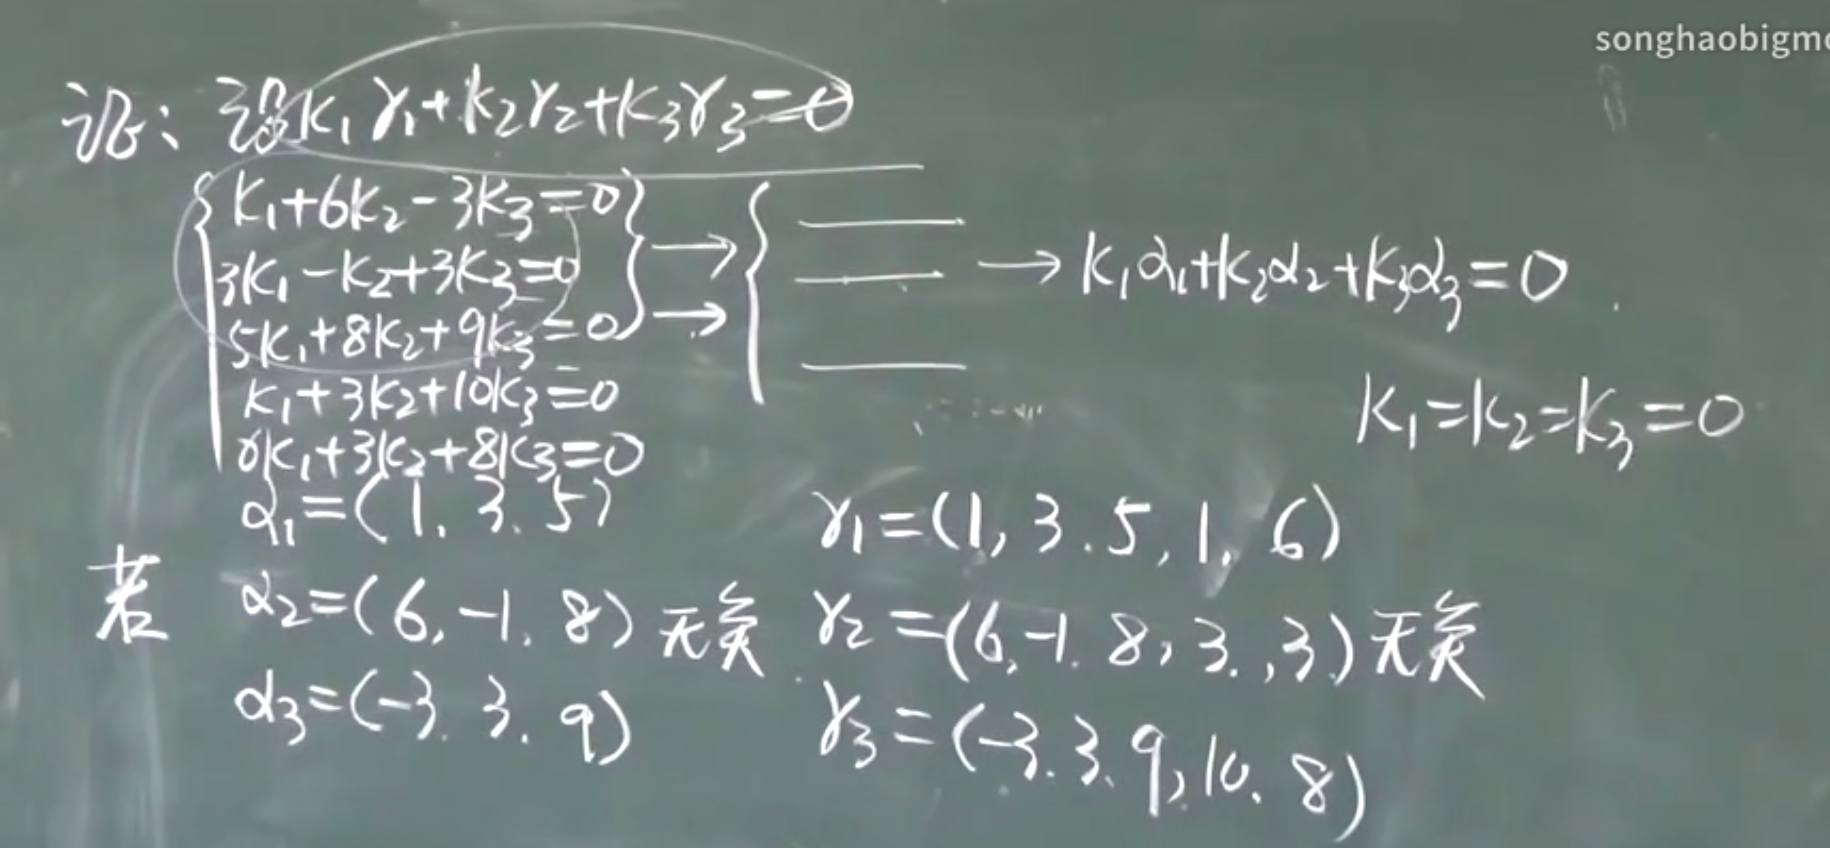 songhaobigm
证: 设k₁γ₁+k₂γ₂+k₃γ₃=0
k₁+6k₂-3k₃=0
3k₁-k₂+3k₃=0
5k₁+8k₂+9k₃=0
k₁+3k₂+10k₃=0
6k₁+3k₂+8k₃=0
→ → → k₁α₁+k₂α₂+k₃α₃=0
k₁=k₂=k₃=0
若
α₁=(1, 3, 5)
α₂=(6, -1, 8) 无关
α₃=(-3, 3, 9)
γ₁=(1, 3, 5, 1, 6)
γ₂=(6, -1, 8, 3, 3) 无关
γ₃=(-3, 3, 9, 10, 8)